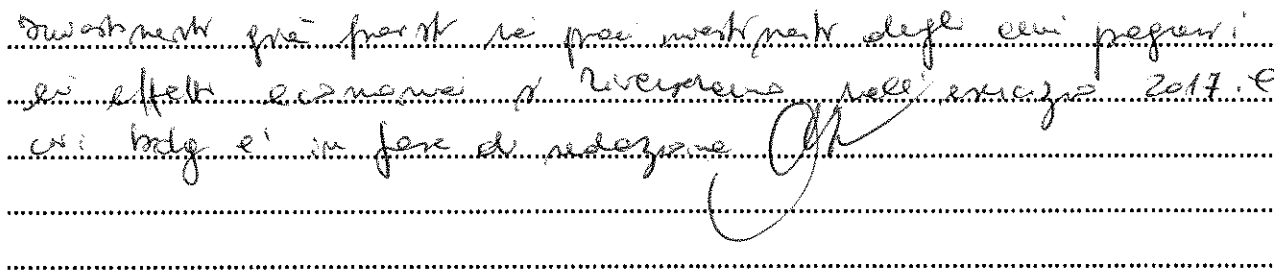 Investimenti già previsti nei piani investimenti degli anni pregressi i
cui effetti economici si riverseranno nell'esercizio 2017. e
cui bdg e' in fase di redazione